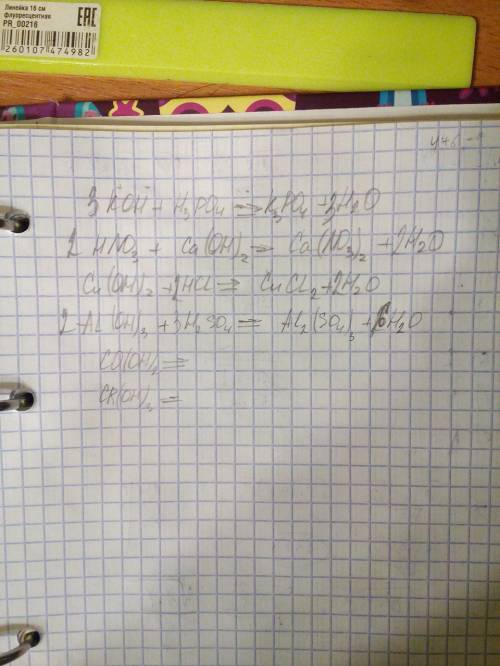 Линейка 16 см
флуоресцентная
PR_00216
EAC
260107 474982
3KOH + H₃PO₄ => K₃PO₄ + 3H₂O
2HNO₃ + Ca(OH)₂ => Ca(NO₃)₂ + 2H₂O
Cu(OH)₂ + 2HCl => CuCl₂ + 2H₂O
2AL(OH)₃ + 3H₂SO₄ = AL₂(SO₄)₃ + 6H₂O
CO(OH)₂ =
CR(OH)₃ =